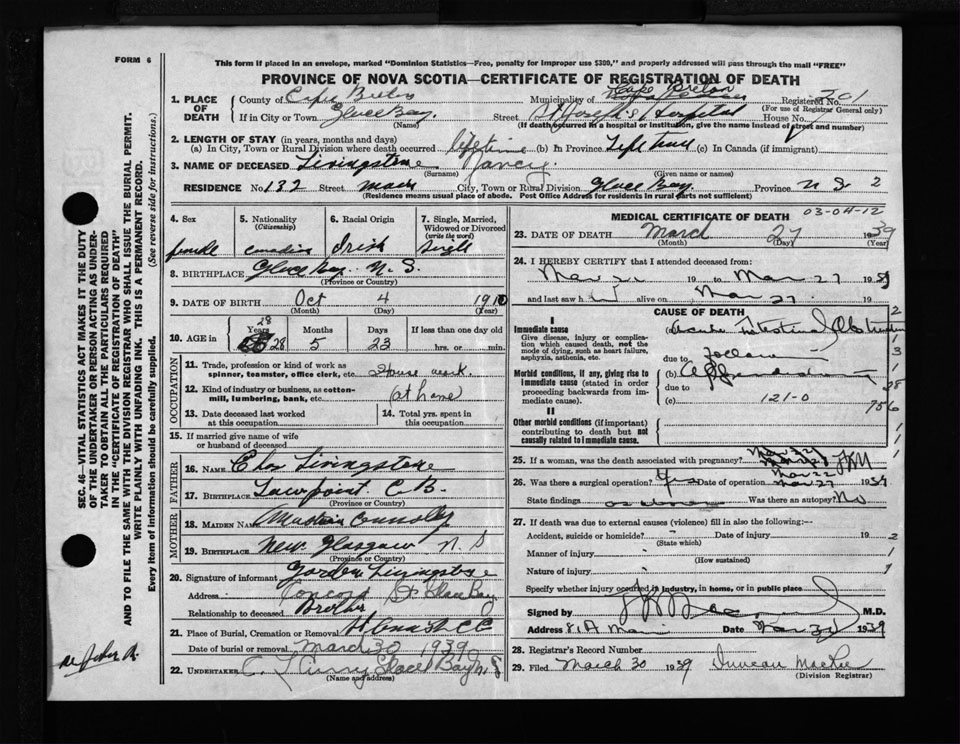 FORM 6
This form if placed in an envelope, marked "Dominion Statistics—Free, penalty for improper use $300," and properly addressed will pass through the mail "FREE"
PROVINCE OF NOVA SCOTIA—CERTIFICATE OF REGISTRATION OF DEATH
1. PLACE OF DEATH County of Cape Breton Municipality of Cape Breton Registered No. 201
(For use of Registrar General only)
If in City or Town Glace Bay Street St Joseph's Hospital House No.
(Name) (If death occurred in a hospital or institution, give the name instead of street and number)
2. LENGTH OF STAY (in years, months and days)
(a) In City, Town or Rural Division where death occurred lifetime (b) In Province Life time (c) In Canada (if immigrant)
3. NAME OF DECEASED Livingstone Nancy
(Surname) (Given name or names)
RESIDENCE No. 132 Street Main City, Town or Rural Division Glace Bay Province N S 2
(Residence means usual place of abode. Post Office Address for residents in rural parts not sufficient)
4. Sex 5. Nationality (Citizenship) 6. Racial Origin 7. Single, Married, Widowed or Divorced (write the word)
female Canadian Irish Single
8. BIRTHPLACE Glace Bay N. S.
(Province or Country)
9. DATE OF BIRTH Oct 4 1910
(Month) (Day) (Year)
10. AGE in Years Months Days If less than one day old
28 28 5 23 hrs. or min.
OCCUPATION
11. Trade, profession or kind of work as spinner, teamster, office clerk, etc. House work
12. Kind of industry or business, as cotton-mill, lumbering, bank, etc. (at home)
13. Date deceased last worked at this occupation
14. Total yrs. spent in this occupation
15. If married give name of wife or husband of deceased
FATHER
16. NAME Livingstone
17. BIRTHPLACE C B.
(Province or Country)
MOTHER
18. MAIDEN NAME
19. BIRTHPLACE New Glasgow N. S
(Province or Country)
20. Signature of informant Gordon Livingstone
Address St Glace Bay
Relationship to deceased Brother
21. Place of Burial, Cremation or Removal
Date of burial or removal March 30 1939
22. UNDERTAKER Glace Bay N. S
(Name and address)
MEDICAL CERTIFICATE OF DEATH 03-04-12
23. DATE OF DEATH March 27 1939
(Month) (Day) (Year)
24. I HEREBY CERTIFY that I attended deceased from:
19 to Mar 27 1939
and last saw h alive on Mar 27 19
CAUSE OF DEATH
I
Immediate cause
Give disease, injury or complication which caused death, not the mode of dying, such as heart failure, asphyxia, asthenia, etc.
(a) Acute Intestinal Obstruction
due to
Morbid conditions, if any, giving rise to immediate cause (stated in order proceeding backwards from immediate cause).
(b)
due to
(c) 121-0
II
Other morbid conditions (if important) contributing to death but not causally related to immediate cause.
25. If a woman, was the death associated with pregnancy?
26. Was there a surgical operation? Yes Date of operation Mar 27 1939
State findings as above Was there an autopsy? No
27. If death was due to external causes (violence) fill in also the following:—
Accident, suicide or homicide? Date of injury 19
(State which)
Manner of injury
(How sustained)
Nature of injury
Specify whether injury occurred in industry, in home, or in public place
Signed by M.D.
Address Main Date 1939
28. Registrar's Record Number
29. Filed March 30 1939 Duncan
(Division Registrar)
SEC. 46—VITAL STATISTICS ACT MAKES IT THE DUTY OF THE UNDERTAKER OR PERSON ACTING AS UNDERTAKER TO OBTAIN ALL THE PARTICULARS REQUIRED IN THE "CERTIFICATE OF REGISTRATION OF DEATH" AND TO FILE THE SAME WITH THE DIVISION REGISTRAR WHO SHALL ISSUE THE BURIAL PERMIT.
WRITE PLAINLY WITH UNFADING INK. THIS IS A PERMANENT RECORD.
Every item of information should be carefully supplied. (See reverse side for instructions.)